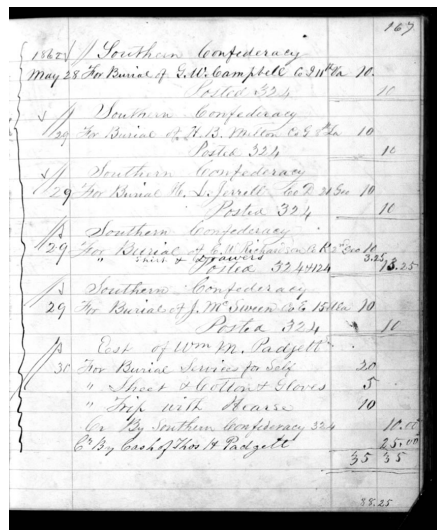 167
1862 // Southern Confederacy
May 28 For Burial of G. W. Campbell Co I 11th Va 10.
Posted 324 10
// Southern Confederacy
29 For Burial of H. B. Milton Co G La 10
Posted 324 10
// Southern Confederacy
29 For Burial H. L. Jerrell Co D 21 Geo 10
Posted 324 10
// Southern Confederacy
29 For Burial of E. W. Richardson Co K 2d 10
" Shirt & Drawers 3.25
Posted 324 & 124 13.25
// Southern Confederacy
29 For Burial of J. McSween Co E 10
Posted 324 10
// Est of Wm M. Padgett
30 For Burial Services for Self 20
" Sheet & Cotton & Gloves 5
" Trip with Hearse 10
Cr By Southern Confederacy 324 10.00
Cr By Cash of Thos H Padgett 25.00
35 35
88.25